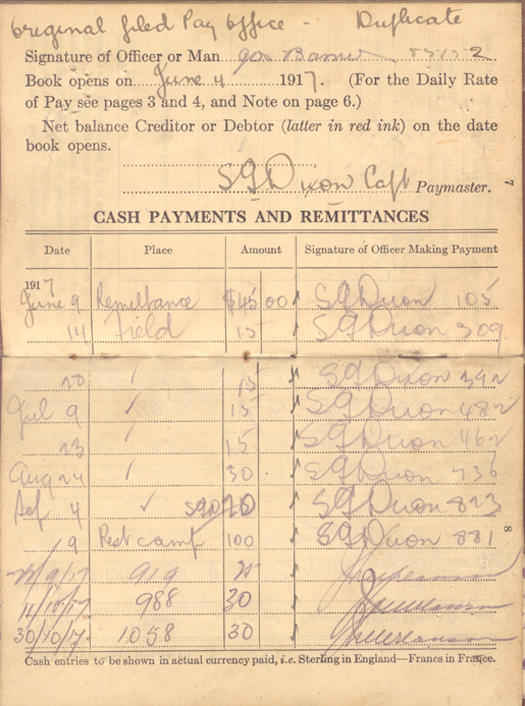 Original filed Pay Office - Duplicate
Signature of Officer or Man
Book opens on June 4 1917. (For the Daily Rate
of Pay see pages 3 and 4, and Note on page 6.)
Net balance Creditor or Debtor (latter in red ink) on the date
book opens.
SG Dixon Capt Paymaster.
7
CASH PAYMENTS AND REMITTANCES
Date Place Amount Signature of Officer Making Payment
1917
June 9 Remittance $45 00 SG Dixon 105
14 Field 15 SG Dixon 309
20 / 15 SG Dixon 392
Jul 9 / 15 SG Dixon 482
23 / 15 SG Dixon 462
Aug 24 / 30 SG Dixon 736
Sep 4 / SGD SG Dixon 823
8
19 Rest camp 100 SG Dixon 881
919
988 30
30/10/17 1058 30
Cash entries to be shown in actual currency paid, i.e. Sterling in England—Francs in France.